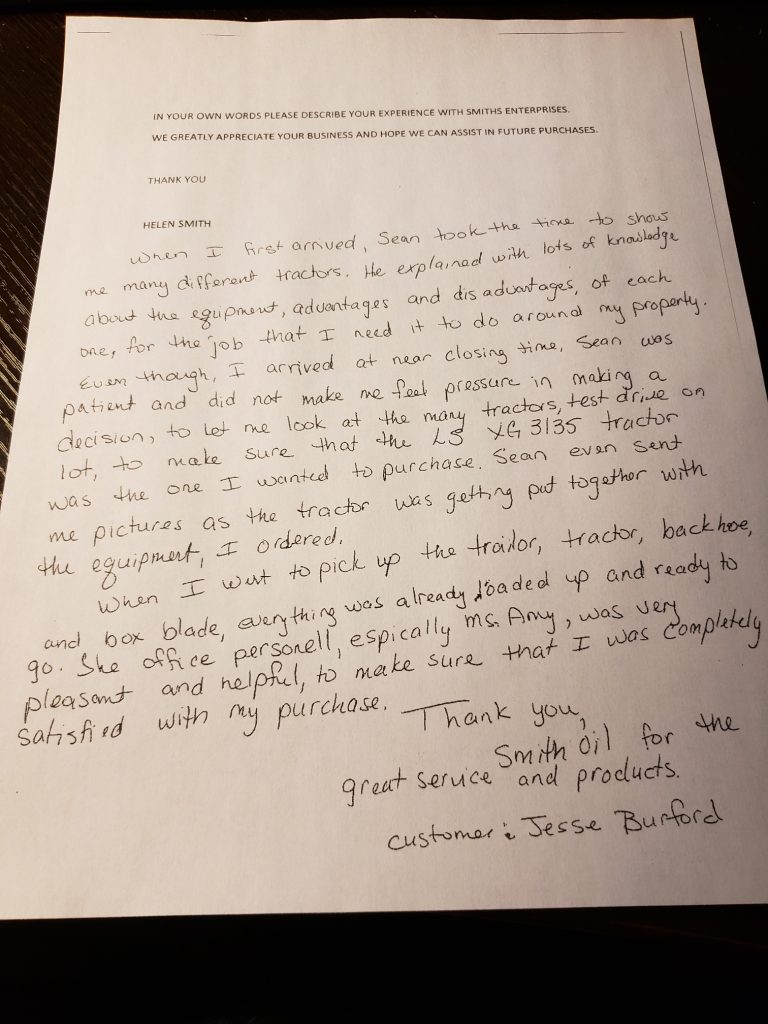 IN YOUR OWN WORDS PLEASE DESCRIBE YOUR EXPERIENCE WITH SMITHS ENTERPRISES.
WE GREATLY APPRECIATE YOUR BUSINESS AND HOPE WE CAN ASSIST IN FUTURE PURCHASES.
THANK YOU
HELEN SMITH
When I first arrived, Sean took the time to show
me many different tractors. He explained with lots of knowladge
about the equipment, advantages and disadvantages, of each
one, for the job that I need it to do around my property.
Even though, I arrived at near closing time, Sean was
patient and did not make me feel pressure in making a
decision, to let me look at the many tractors, test drive on
lot, to make sure that the LS XG 3135 tractor
was the one I wanted to purchase. Sean even sent
me pictures as the tractor was getting put together with
the equipment, I ordered.
When I went to pick up the trailor, tractor, backhoe,
and box blade, everything was already loaded up and ready to
go. She office personell, espically Ms. Amy, was very
pleasant and helpful, to make sure that I was completely
satisfied with my purchase. Thank you,
Smith Oil for the
great service and products.
customer: Jesse Burford